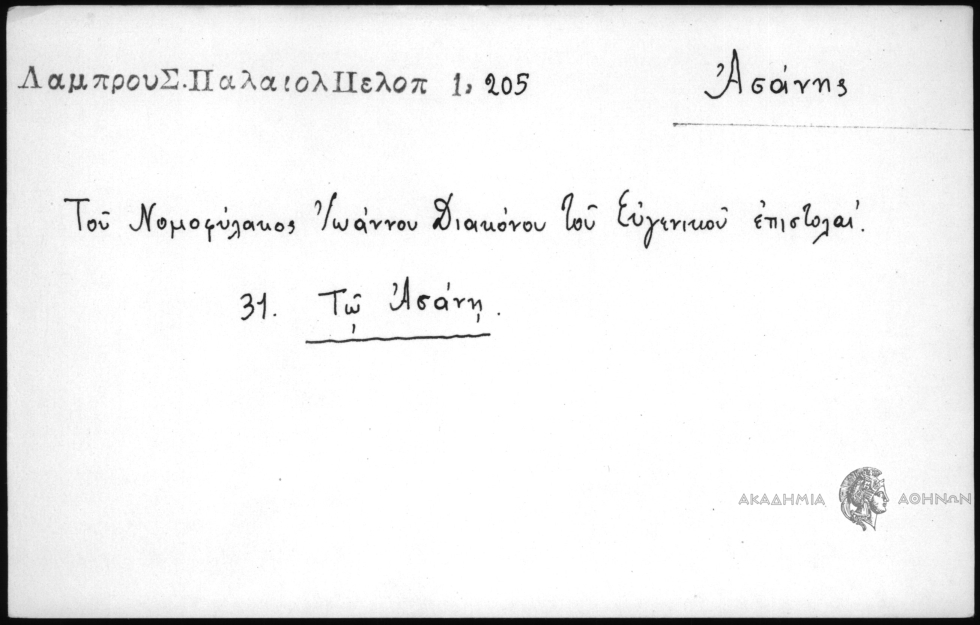 ΛαμπρουΣ.ΠαλαιολΠελοπ 1, 205
Ἀσάνης
Τοῦ Νομοφύλακος Ἰωάννου Διακόνου τοῦ Εὐγενικοῦ ἐπιστολαί.
31. Τῷ Ἀσάνῃ.
ΑΚΑΔΗΜΙΑ ΑΘΗΝΩΝ